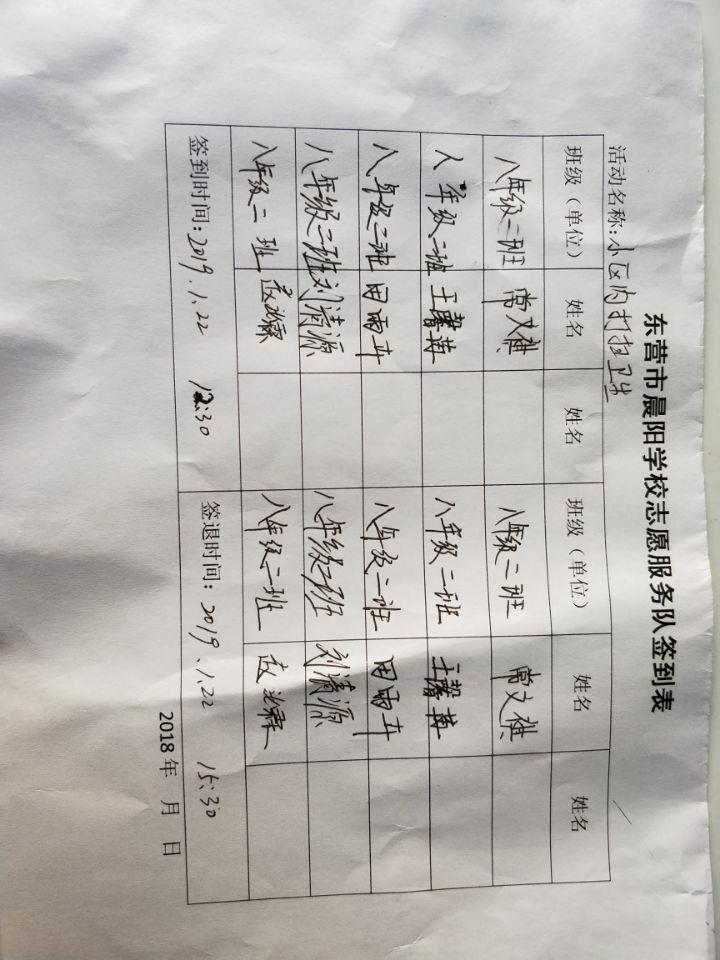 东营市晨阳学校志愿服务队签到表
活动名称:小区内打扫卫生
班级（单位） 姓名 姓名 班级（单位） 姓名 姓名
八年级二班 常文健 八年级二班 常文健
八年级二班 王馨苒 八年级二班 王馨苒
八年级二班 田雨卉 八年级二班 田雨卉
八年级二班 刘清源 八年级二班 刘清源
八年级二班 八年级二班
签到时间:2019.1.22 12:30 签退时间: 2019.1.22 15:30
2018年 月 日